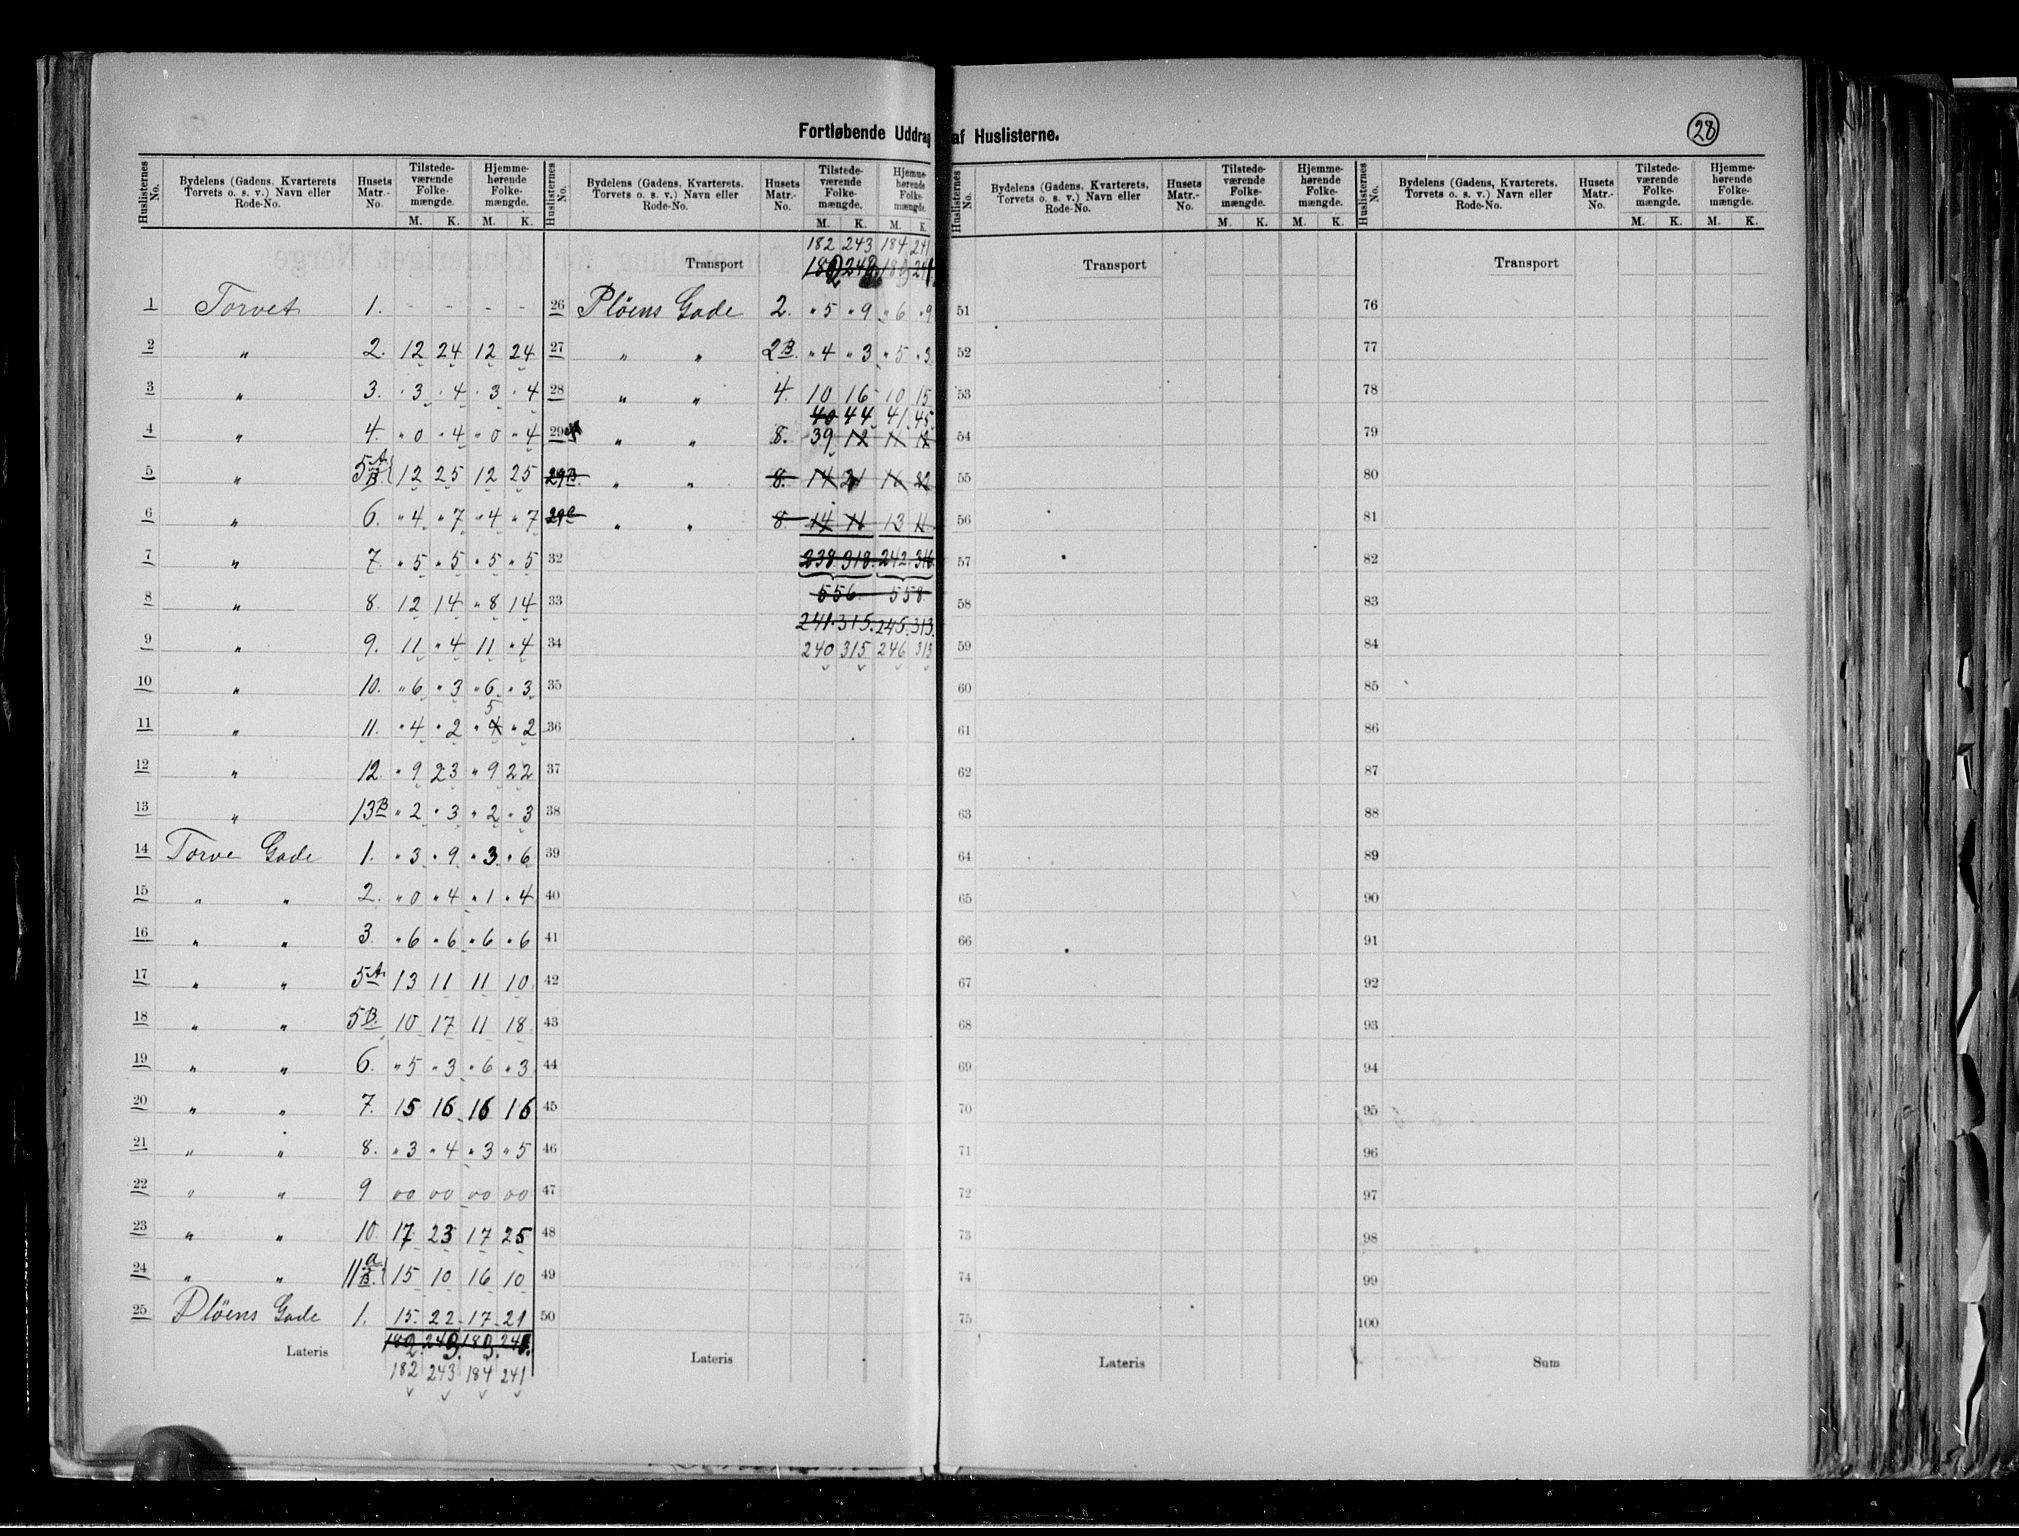 Fortløbende Uddrag af Huslisterne.
28
Huslisternes No. | Bydelens (Gadens, Kvarterets, Torvets o. s. v.) Navn eller Rode-No. | Husets Matr.-No. | Tilstedeværende Folkemængde. M. K. | Hjemmehørende Folkemængde. M. K.
1 Torvet 1. - - - -
2 " 2. 12 24 12 24
3 " 3. " 3 " 4 " 3 " 4
4 " 4. " 0 " 4 " 0 " 4
5 " 5 A B. 12 25 12 25
6 " 6. " 4 " 7 " 4 " 7
7 " 7. " 5 " 5 " 5 " 5
8 " 8. 12 14 " 8 14
9 " 9. 11 " 4 11 " 4
10 " 10. " 6 " 3 " 6 " 3
11 " 11. " 4 " 2 " 4 5 " 2
12 " 12. " 9 23 " 9 22
13 " 13B " 2 " 3 " 2 " 3
14 Torve Gade 1. " 3 " 9 " 3 " 6
15 " " 2. " 0 " 4 " 1 " 4
16 " " 3. " 6 " 6 " 6 " 6
17 " " 5A 13 11 11 10
18 " " 5B. 10 17 11 18
19 " " 6. " 5 " 3 " 6 " 3
20 " " 7. 15 16 16 16
21 " " 8. " 3 " 4 " 3 " 5
22 " " 9 00 00 00 00
23 " " 10. 17 23 17 25
24 " " 11 a B. 15 10 16 10
25 Pløens Gade 1. 15 22 17 21
Lateris
182 243 184 241
Huslisternes No. | Bydelens (Gadens, Kvarterets, Torvets o. s. v.) Navn eller Rode-No. | Husets Matr.-No. | Tilstedeværende Folkemængde. M. K. | Hjemmehørende Folkemængde. M. K.
182 243 184 241
Transport
26 Pløens Gade 2. " 5 " 9 " 6 " 9
27 " " 2B. " 4 " 3 " 5 " 3
28 " " 4. 10 16 10 15
40 44 41 45
29A " " 8. 39 12 11 12
29B. " " 8. 14 21 16 22
29C " " 8. 14 11 13 11
32 238 318 242 316
33 556. 558.
241. 315. 245. 313.
34 240 315 246 313
35
36
37
38
39
40
41
42
43
44
45
46
47
48
49
50
Lateris
Huslisternes No. | Bydelens (Gadens, Kvarterets, Torvets o. s. v.) Navn eller Rode-No. | Husets Matr.-No. | Tilstedeværende Folkemængde. M. K. | Hjemmehørende Folkemængde. M. K.
Transport
51
52
53
54
55
56
57
58
59
60
61
62
63
64
65
66
67
68
69
70
71
72
73
74
75
Lateris
Huslisternes No. | Bydelens (Gadens, Kvarterets, Torvets o. s. v.) Navn eller Rode-No. | Husets Matr.-No. | Tilstedeværende Folkemængde. M. K. | Hjemmehørende Folkemængde. M. K.
Transport
76
77
78
79
80
81
82
83
84
85
86
87
88
89
90
91
92
93
94
95
96
97
98
99
100
Sum